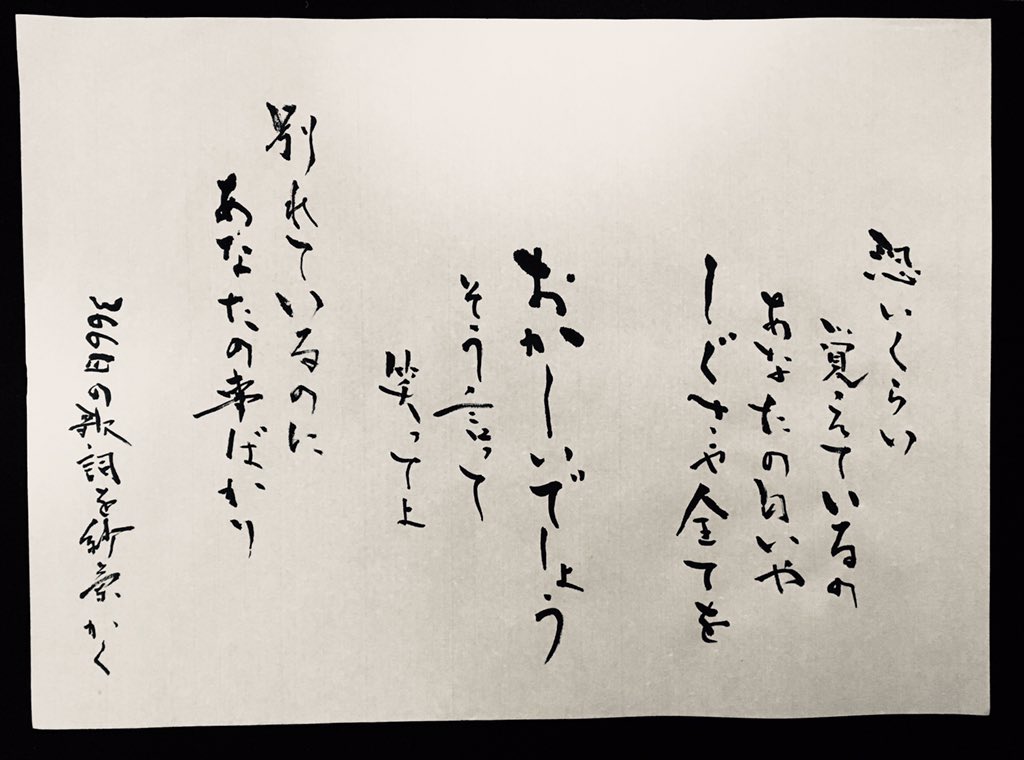 恐いくらい
覚えているの
あなたの匂いや
しぐさや全てを
おかしいでしょう
そう言って
笑ってよ
別れているのに
あなたの事ばかり
366日の歌詞を かく